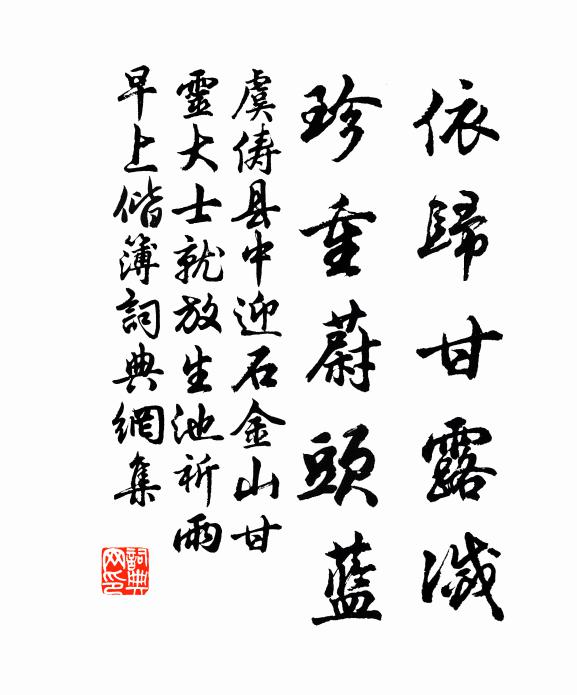 依歸甘露滅
珍重蔚頭藍
虞儔县中迎石金山甘
靈大士就放生池祈雨
早上偕簿詞典網集
詞典网印